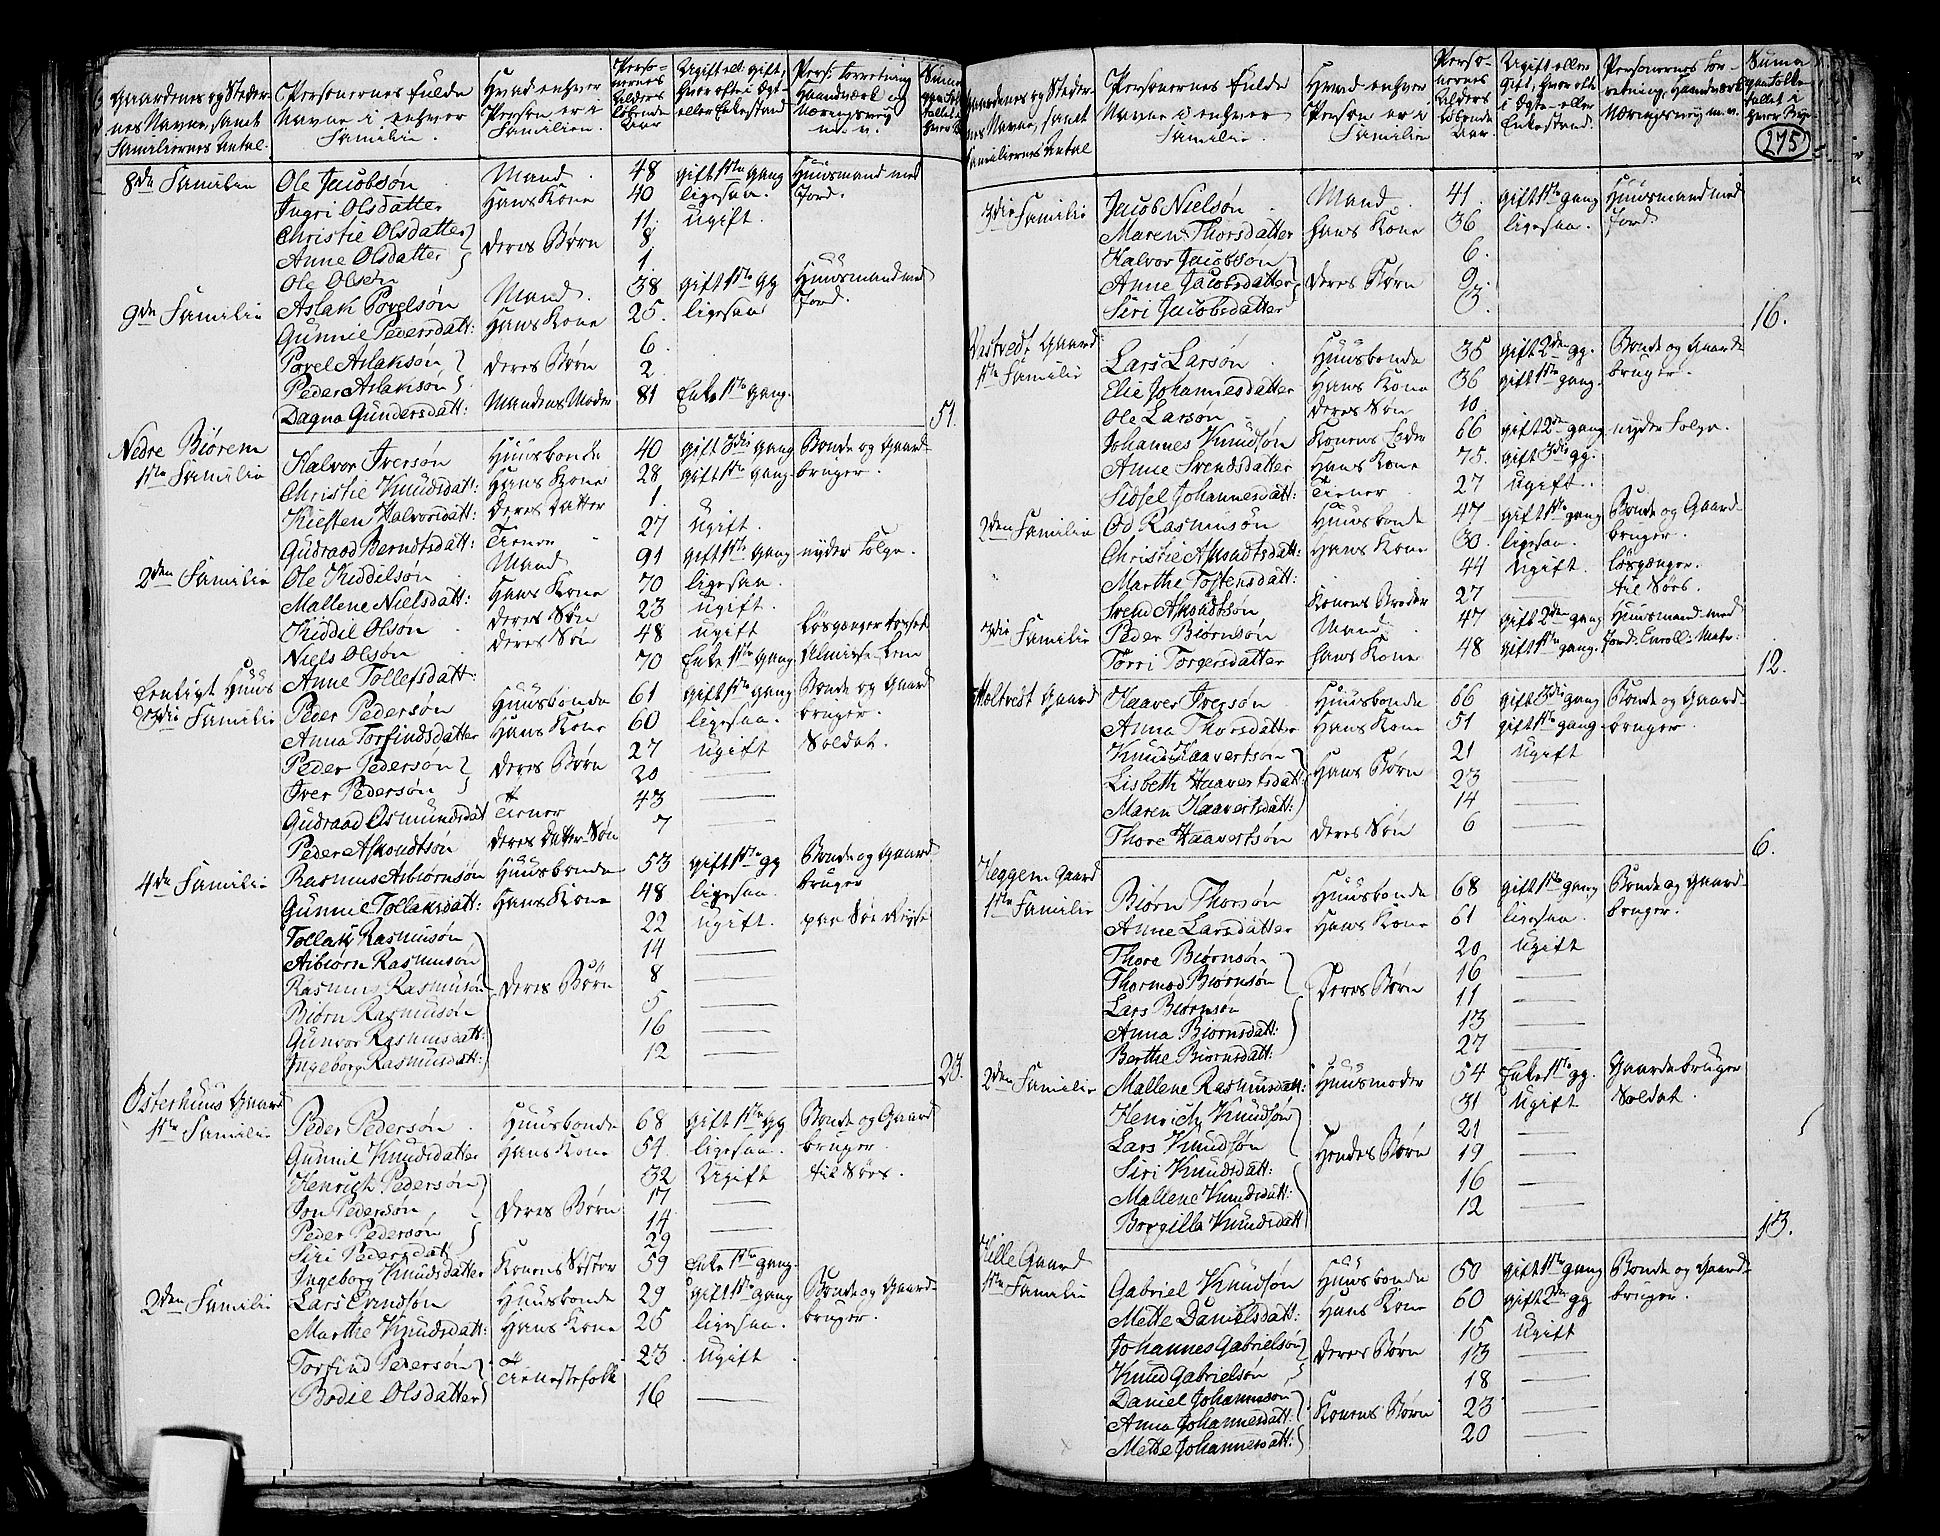 Gaardenes og Steder- | Personernes fulde | Hvad enhver | Perso- | Ugift ell: gift, | Pers: forretning | Summa
nes Navne, samt | Navne i enhver | Person er i | nernes | hvor ofte i Ægt- | Haandværk og
Familiernes Antal. | Familie | Familien. | Alders løbende Aar | eller Enkestand | Næringsvej m. v.
8de Familie | Ole Jacobsøn | Mand | 48 | gift 1ste gang | Huusmand med
Ingri Olsdatter | Hans Kone | 40 | ligesaa. | Jord.
Christie Olsdatter | deres Børn | 11. | ugift.
Anne Olsdatter | 8
Ole Olsen | 1
9de Familie | Aslak Povelsøn | Mand. | 38 | gift 1ste gg | Huusmand med
Gunnil Pedersdatt: | Hans Kone | 25. | ligesaa | Jord.
Povel Aslaksøn | deres Børn | 6.
Peder Aslaksøn | 2.
Dagna Gundersdatt: | Mandens Moder | 81 | Enke 1ste gang. | 51.
Nedre Biørem
1ste Familie | Halvor Iversøn | Huusbonde | 40 | gift 3die gang | Bonde og Gaard-
Christie Knudsdatt: | Hans Kone | 28 | gift 1ste gang | bruger.
Kiesten Halvorsdatt: | deres Datter | 1.
Gudraad Berndtsdatt: | Tienere | 27 | ugift.
2den Familie | Ole Kiddilsøn | Mand | 91 | gift 1ste gang | nyder Folge.
Mallene Nielsdatt: | Hans Kone | 70 | ligesaa.
Kiddil Olsøn | deres Søn | 23 | ugift.
Niels Olsøn | deres Søn | 48 | ugift | Løsgænger
Eenligt Huus | Anne Tollefsdatt: | 70 | Enke 1ste gang. | Almisse Lem
3die Familie | Peder Pedersøn | Huusbonde | 61 | gift 1ste gang | Bonde og Gaard
Anna Torfindsdatter | Hans Kone | 60 | ligesaa. | bruger.
Peder Pedersøn | deres Børn | 27 | ugift | Soldat.
Iver Pedersøn | 20 | —
Gudraad Osmundsdat | Tiener | 43 | —
Peder Asmundtsøn | deres Datter Søn | 7 | —
4de Familie | Rasmus Asbiørnsøn | Huusbonde | 53 | gift 1ste gg | Bonde og Gaard
Gunnil Tollaksdatt: | Hans Kone | 48 | ligesaa. | bruger
Tollak Rasmusøn | deres Børn | 22 | ugift. | paa Søe Reyse
Asbiørn Rasmusøn | 14 | —
Rasmus Rasmusøn | 8 | —
Biørn Rasmusøn | 5 | —
Gunvor Rasmusdatt: | 16 | —
Ingeborg Rasmusdatt: | 12 | — | 23.
Østerhuus Gaard
1ste Familie | Peder Pedersøn | Huusbonde | 68 | gift 1ste gg | Bonde og Gaard
Gunnil Knudsdatter | Hans Kone | 54. | ligesaa. | bruger.
Henrich Pedersøn | deres Børn | 32 | Ugift | til Søes.
Jon Pedersøn | 17 | —
Peder Pedersøn | 14 | —
Siri Pedersdatt | 29 | —
Ingeborg Knudsdatter | Konens Søster | 59 | Enke 1ste gang.
2den Familie | Lars Svendsøn | Huusbonde | 29 | gift 1ste gang | Bonde og Gaard-
Marthe Knudsdatt: | Hans Kone | 25 | ligesaa. | bruger.
Torfind Pedersøn | Tienestefolk | 23 | Ugift
Bodil Olsdatter | 16 | —
Gaardenes og Steder- | Personernes fulde | Hvad enhver | Perso- | Ugift eller | Personernes for- | Suma
nes Navne, samt | Navne i enhver | Person er i | nernes | Gift, hvor ofte | retning, Haandværk | paa Folke
Familiernes Antal | Familie. | Familien | Alders løbende Aar. | i Ægte- eller Enkestand. | Næringsvej m. v. | tallet i hver Bye
275
3die Familie | Jacob Nielsøn | Mand. | 41. | gift 1ste gang | Huusmand med
Maren Thorsdatter | hans Kone | 36 | ligesaa. | Jord.
Halvor Jacobsøn | deres Børn | 6.
Anne Jacobsdatter | 9.
Siri Jacobsdatter | 3. | 16.
Vestvedt Gaard
1ste Familie | Lars Larsøn | Huusbonde | 35 | gift 2den gg. | Bonde og Gaard
Elie Johannesdatter | Hans Kone | 36 | gift 1ste gang. | bruger.
Ole Larsøn | deres Søn | 10.
Johannes Knudsøn | Konens Fader | 66 | gift 2den gang | nyder Folge.
Anne Svendsdatter | Hans Kone | 75. | gift 3die gg.
Sidsel Johannesdatt: | Tiener | 27 | ugift.
2den Familie | Od Rasmusøn | Huusbonde | 47 | gift 1ste gang | Bonde og Gaard-
Christie Asmudtsdatt: | Hans Kone | 30. | ligesaa. | bruger.
Marthe Tostensdatt: | 44 | Ugift. | løsgænger.
Svend Asmudtsøn | Konens Broder | 27 | — | til Søes.
3die Familie | Peder Biørnsøn | Mand. | 47 | gift 2den gang | Huusmand med
Torri Torgersdatter | hans Kone | 48 | gift 1ste gang. | Jord. Enroll: Matr: | 12.
Holtvedt Gaard | Haaver Iversøn | Huusbonde | 66 | gift 3die gang | Bonde og Gaard-
Anna Thorsdatter | Hans Kone | 51 | gift 1ste gang. | bruger.
Knud Haavertsøn | Hans Børn | 21 | ugift
Lisbeth Haavertsdatt: | 23 | —
Maren Haavertsdatt: | 14 | —
Thore Haavertsøn | deres Søn | 6 | — | 6.
Heggem Gaard
1ste Familie | Biørn Thorsøn | Huusbonde | 68 | gift 1ste gang | Bonde og Gaard-
Anne Larsdatter | Hans Kone | 61 | ligesaa. | bruger.
Thore Biørnsøn | Deres Børn | 20 | ugift
Thormod Biørnsøn | 16 | —
Lars Biørnsøn | 11 | —
Anna Biørnsdatt: | 13 | —
Berthe Biørnsdatt: | 27 | —
2den Familie | Mallene Rasmusdatt: | Huusmoder | 54 | Enke 1ste gg. | Gaardebruger
Henrich Knudsøn | Hendes Børn | 31 | Ugift | Soldat.
Lars Knudsøn | 21 | —
Siri Knudsdatt: | 19 | —
Mallene Knudsdatt: | 16 | —
Borgilla Knudsdatt | 12 | — | 13.
Hille Gaard
1ste Familie | Gabriel Knudsøn | Huusbonde | 50 | gift 1ste gang | Bonde og Gaard-
Mette Danielsdatt: | Hans Kone | 60 | gift 2den gg | bruger.
Johannes Gabrielsøn | deres Børn | 15 | ugift
Knud Gabrielsøn | 13 | —
Daniel Johannesøn | Konens Børn | 18 | —
Anna Johannesdatt: | 23 | —
Mette Johannesdatt: | 20 | —